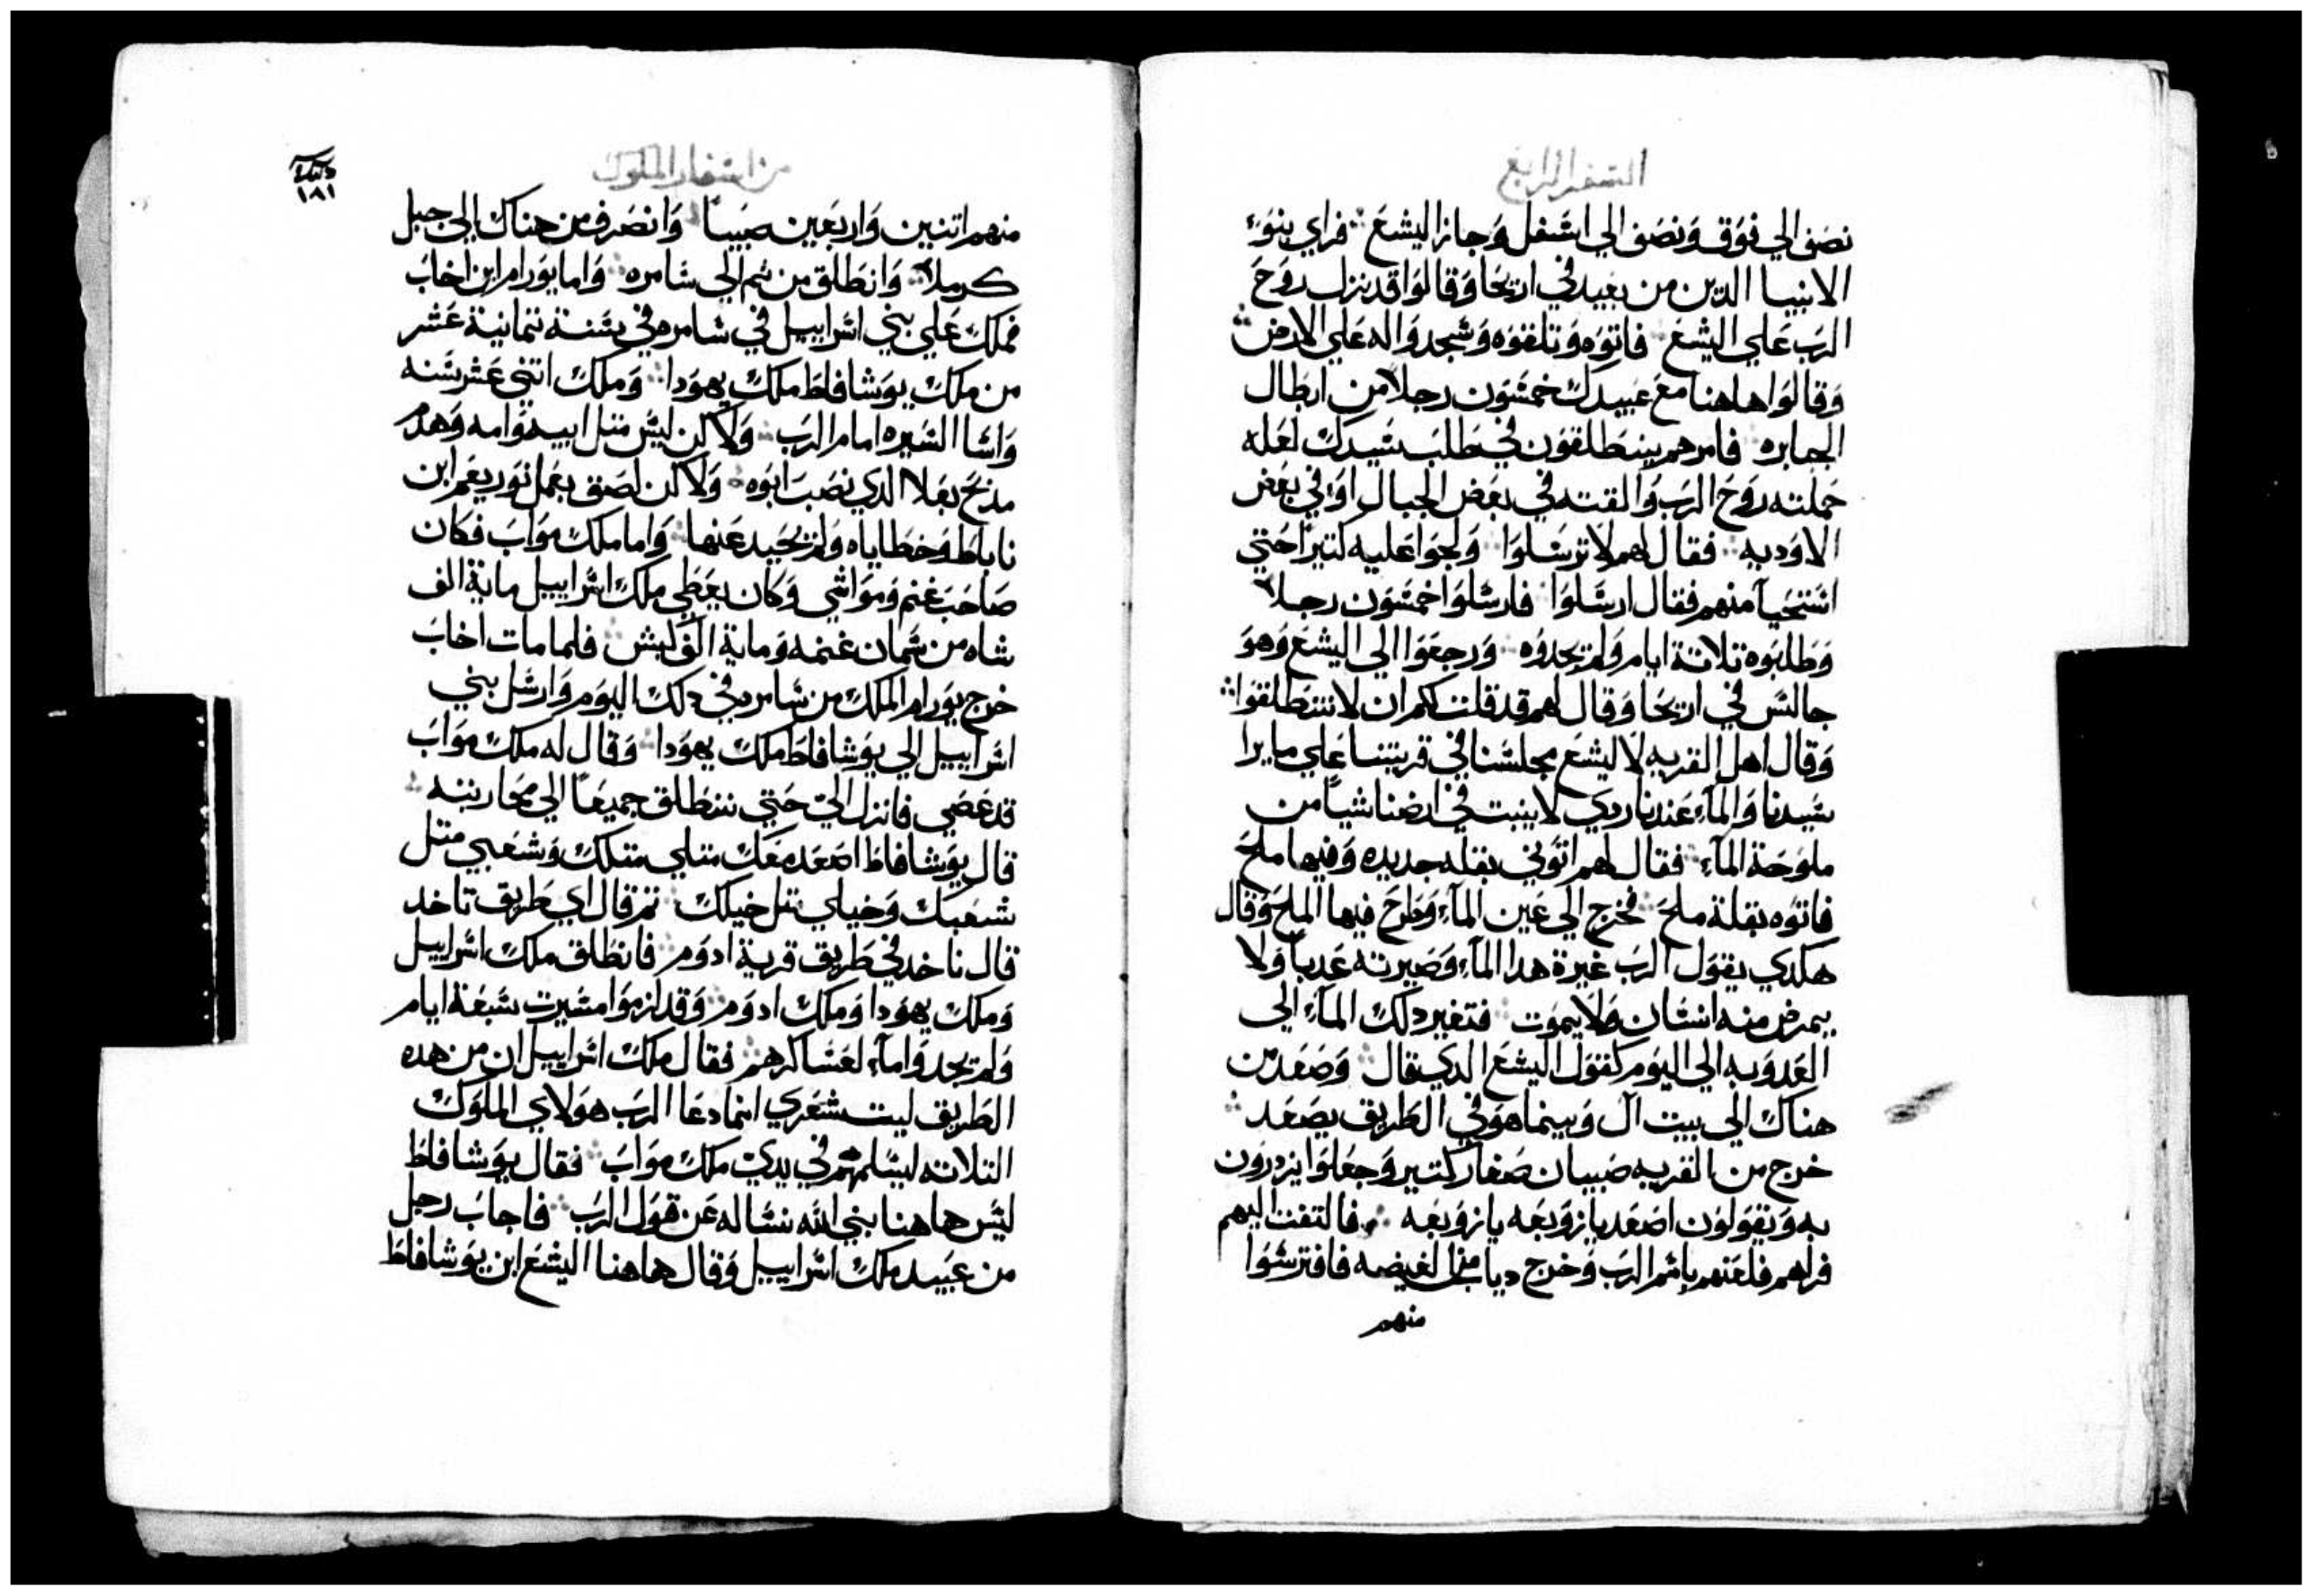 السفر الرابع
نصف الي فوق ونصف الي اسفل وجاز اليشع فراي بنوء
الانبيا الدين من بعيد في اريحا وقالوا قد نزل روح
الرب علي اليشع فاتوه وتلقوه وسجدوا له علي الارض
وقالوا هاهنا مع عبيدك خمسون رجلا من ابطال
الجبابره فامرهم ينطلقون في طلب سيدك لعله
حملته روح الرب والقته في بعض الجبال او في بعض
الاوديه فقال لهم لا ترسلوا ولجوا عليه كتيرا حتي
استحيا منهم فقال ارسلوا فارسلوا خمسون رجلا
وطلبوه تلاتة ايام ولم يجدوه ورجعوا الي اليشع وهو
جالس في اريحا وقال لهم قد قلت لكم ان لا تنطلقوا
وقال اهل القريه لاليشع مجلسنا في قريتنا علي ما يرا
سيدنا والمآء عندنا ردي لا ينبت في ارضنا شيا من
ملوحة المآء فقال لهم اتوني بقله جديده وفيها ملح
فاتوه بقلة ملح فخرج الي عين المآء وطرح فيها الملح وقال
هكدي يقول الرب غيرة هدا المآء وصيرته عدبا ولا
يمرض منه انسان ولا يموت فتغير دلك المآء الي
العدوبه الي اليوم كقول اليشع الدي قال وصعد من
هناك الي بيت آل وبينما هو في الطريق يصعد
خرج من القريه صبيان صغار كتير وجعلوا يزدرون
به ويقولون اصعد يا زوبعه يا زوبعه فالتفت اليهم
فراهم فلعنهم باسم الرب وخرج دياب من الغيضه فافترسوا
منهم
من اسفار الملوك
١٨١
منهم اتنين واربعين صبيا وانصرف من هناك الي جبل
كرملا وانطلق من تم الي شامره واما يورام ابن اخاب
فملك علي بني اسراييل في شامره في سنة تمانية عشر
من ملك يوشافاط ملك يهودا وملك اتني عشر سنه
واسا السيره امام الرب ولاكن ليس متل ابيه وامه وهدم
مدبح بعلا الدي نصب ابوه ولاكن لصق بعمل توربعم ابن
ناباط وخطاياه ولم يحيد عنها واما ملك مواب فكان
صاحب غنم ومواشي وكان يعطي ملك اسراييل ماية الف
شاه من سمان غنمه وماية الف كبش فلما مات اخاب
خرج يورام الملك من شامره في دلك اليوم وارسل بني
اسراييل الي يوشافاط ملك يهودا وقال له ملك مواب
قد عصي فانزل الي حتي ننطلق جميعا الي محاربته
قال يوشافاط اصعد معك متلي متلك وشعبي متل
شعبك وخيلي متل خيلك تم قال اي طريق تاخد
قال ناخد في طريق قرية ادوم فانطلق ملك اسراييل
وملك يهودا وملك ادوم وقد لزموا مسيرت سبعة ايام
ولم يجدوا مآء لعساكرهم فقال ملك اسراييل ان من هده
الطريق ليت شعري انما دعا الرب هولاي الملوك
التلاته ليسلمهم في يدي ملك مواب فقال يوشافاط
ليس هاهنا بني الله نساله عن قول الرب فاجاب رجل
من عبيد ملك اسراييل وقال هاهنا اليشع ابن يوشافاط